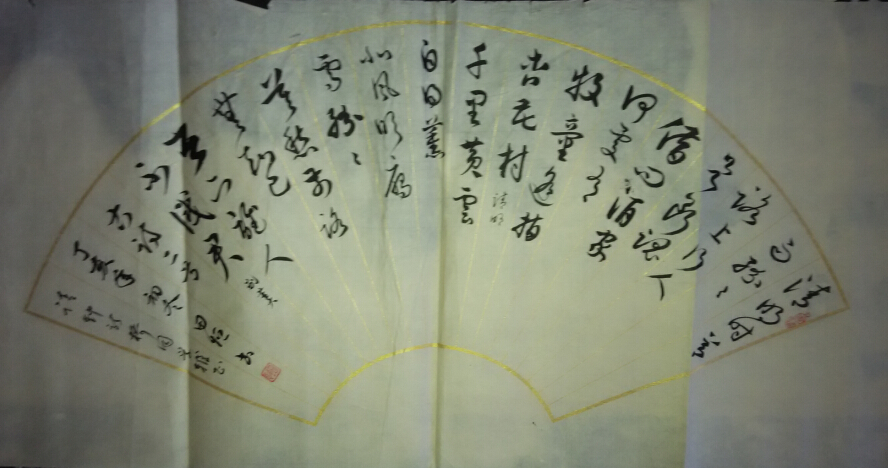 清明时节
雨纷纷
路上行人
欲断魂
借问酒家
何处有
牧童遥指
杏花村
清明
千里黄云
白日曛
北风吹雁
雪纷纷
莫愁前路
无知己
天下谁人
不识君
诗二首
丁亥年初春